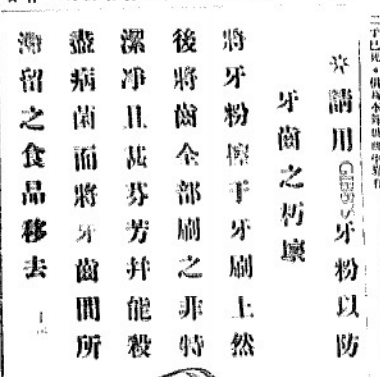 ☆請用GIBBS牙粉以防
牙齒之朽壞
將牙粉擦于牙刷上然
後將齒全部刷之非特
潔净且甚芬芳幷能殺
盡病菌而將牙齒間所
滯留之食品移去